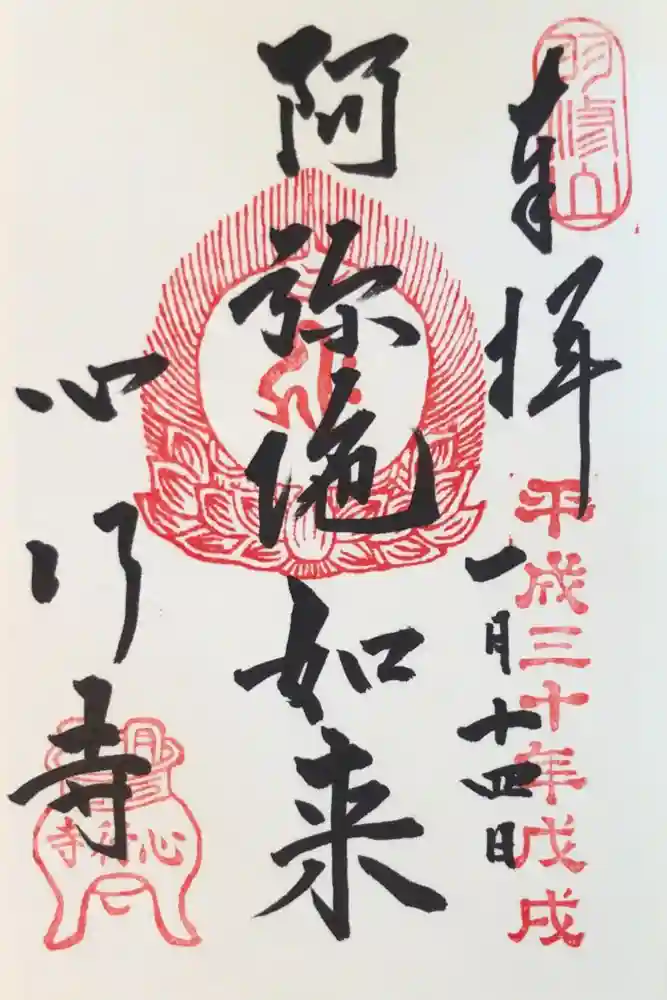 奉拝
羽浄山
平成三十年戊戌
一月十四日
阿弥陀如来
心行寺
心行寺